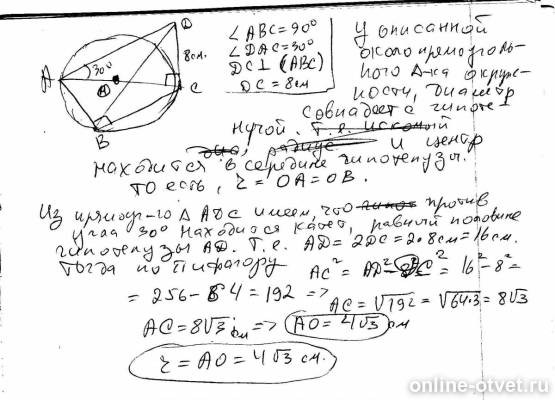 D
8см.
A
30°
O
C
B
∠ABC=90°
∠DAC=30°
DC⊥(ABC)
DC=8см
У описанной
около прямоуголь-
ного Δ-ка окруж-
ности, диаметр
совпадает с гипоте-
нузой. Т.е. искомый
радиус и центр
находится в середине гипотенузы.
то есть, r=OA=OB.
Из прямоуг-го ΔADC имеем, что против
угла 30° находится катет, равный половине
гипотенузы AD. Т.е. AD=2DC=2·8см=16см.
Тогда по Пифагору AC²=AD²-DC²=16²-8²=
=256-64=192 => AC=√192=√64·3=8√3
AC=8√3 см => AO=4√3 см
r=AO=4√3 см.
online-otvet.ru